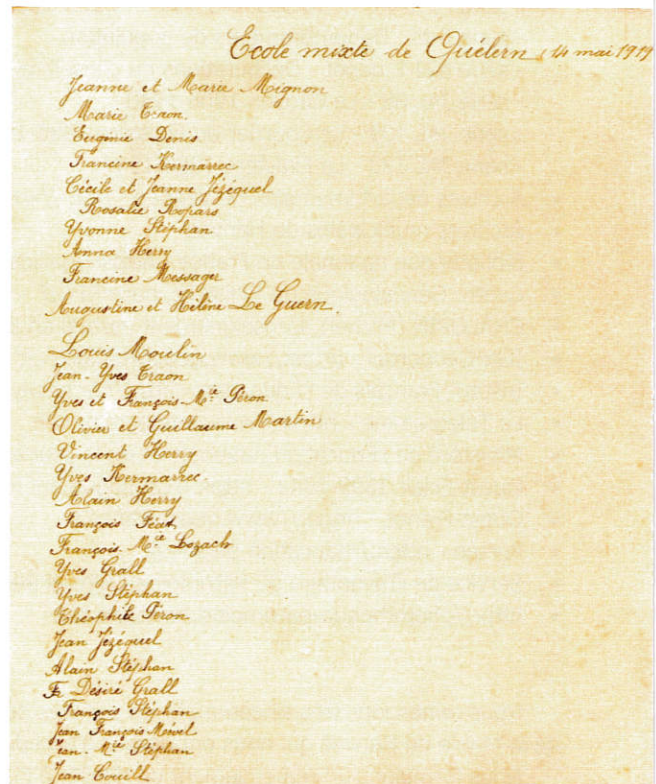 Ecole mixte de Quélern, 14 mai 1919
Jeanne et Marie Mignon
Marie Craon.
Eugénie Denis.
Francine Kermarrec
Cécile et Jeanne Jézéquel
Rosalie Ropars
Yvonne Stéphan
Anna Herry
Francine Messager
Augustine et Hélène Le Guern.
Louis Moulin
Jean-Yves Craon
Yves et François-Mie Péron
Olivier et Guillaume Martin
Vincent Herry
Yves Kermarrec.
Alain Herry
François
François-Mie Lozach
Yves Grall
Yves Stéphan
Théophile Péron
Jean Jézéquel
Alain Stéphan
F. Désiré Grall
François Stéphan
Jean François Mével
Jean-Mie Stéphan
Jean